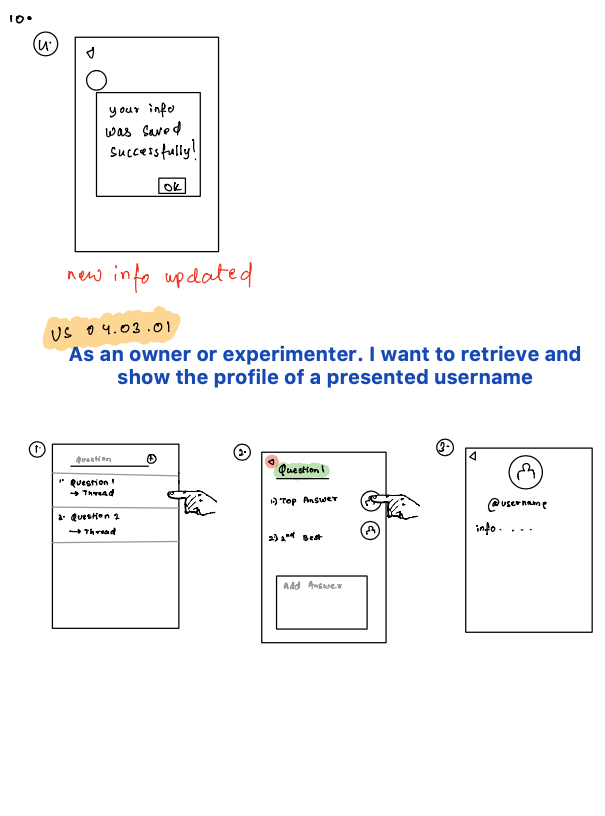 10.
4.
your info
was saved
successfully!
OK
new info updated
US 04.03.01
As an owner or experimenter. I want to retrieve and
show the profile of a presented username
1.
Question
1. Question 1
→ Thread
2. Question 2
→ Thread
2.
Question 1
1.) Top Answer
2.) 2nd Best
Add Answer
3.
@username
info. . . . .